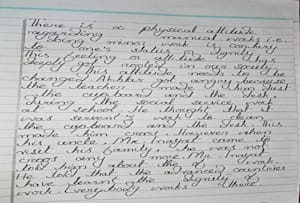 There is a physical attitude
regarding manual work i.e.
doing minor work is contrary
to one's status or dignity.
This feeling or attitude is thus
deeply got rooted in our society.
This attitude needs to be
changed. Akhbar got angry because
the teacher made him dust
the cupboard and the desk
during the social service work
at school. He thought that it
was servent's work to clean
the cupboard and the desk. This
made him cross. However when
his uncle, Mr. Inayat came to
visit his family, he was not
cross any more. Mr. Inayat
told him about the of work.
He told that the advanced countries
have learnt the dignity of
work. Everybody works there